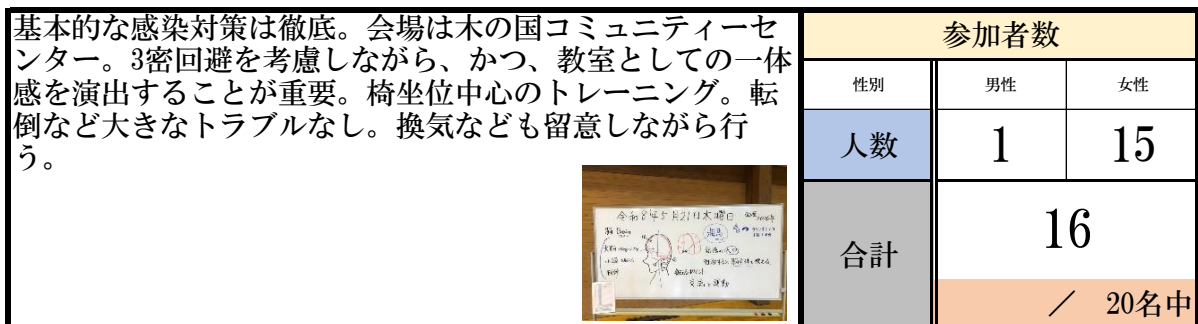 基本的な感染対策は徹底。会場は木の国コミュニティーセ
ンター。3密回避を考慮しながら、かつ、教室としての一体
感を演出することが重要。椅坐位中心のトレーニング。転
倒など大きなトラブルなし。換気なども留意しながら行
う。
参加者数
性別 男性 女性
人数 1 15
合計 16
／ 20名中
令和8年5月21日木曜日